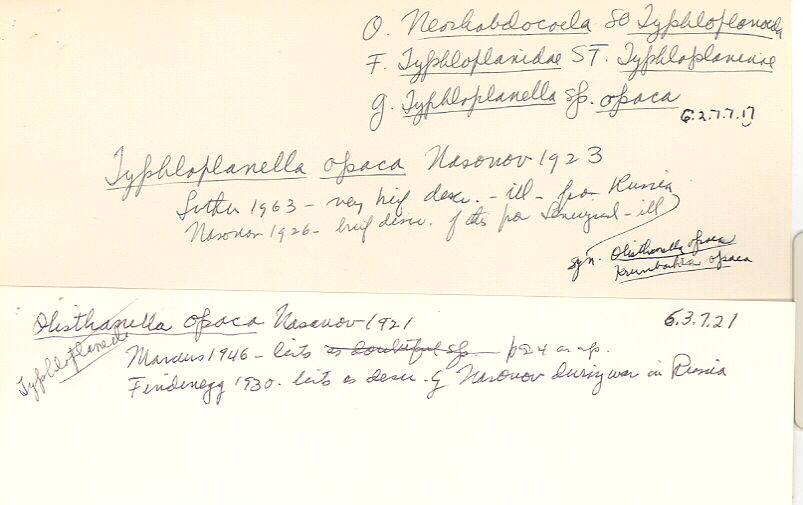 O. Neorhabdocoela SO Typhloplanoida
F. Typhloplanidae ST. Typhloplaninae
G. Typhloplanella sp. opaca
6.2.7.7.17
Typhloplanella opaca Nasonov 1923
Luther 1963 - very brief descr. - ill - from Russia
Nasonov 1926 - brief descr. of this from - ill
syn. Olisthanella opaca
Krumbachia opaca
Olisthanella opaca Nasonov 1921 6.3.7.21
Typhloplanella
Marcus 1946 - lists as doubtful sp. - p 24 as sp.
Findenegg 1930 - lists as descr. by Nasonov during war in Russia